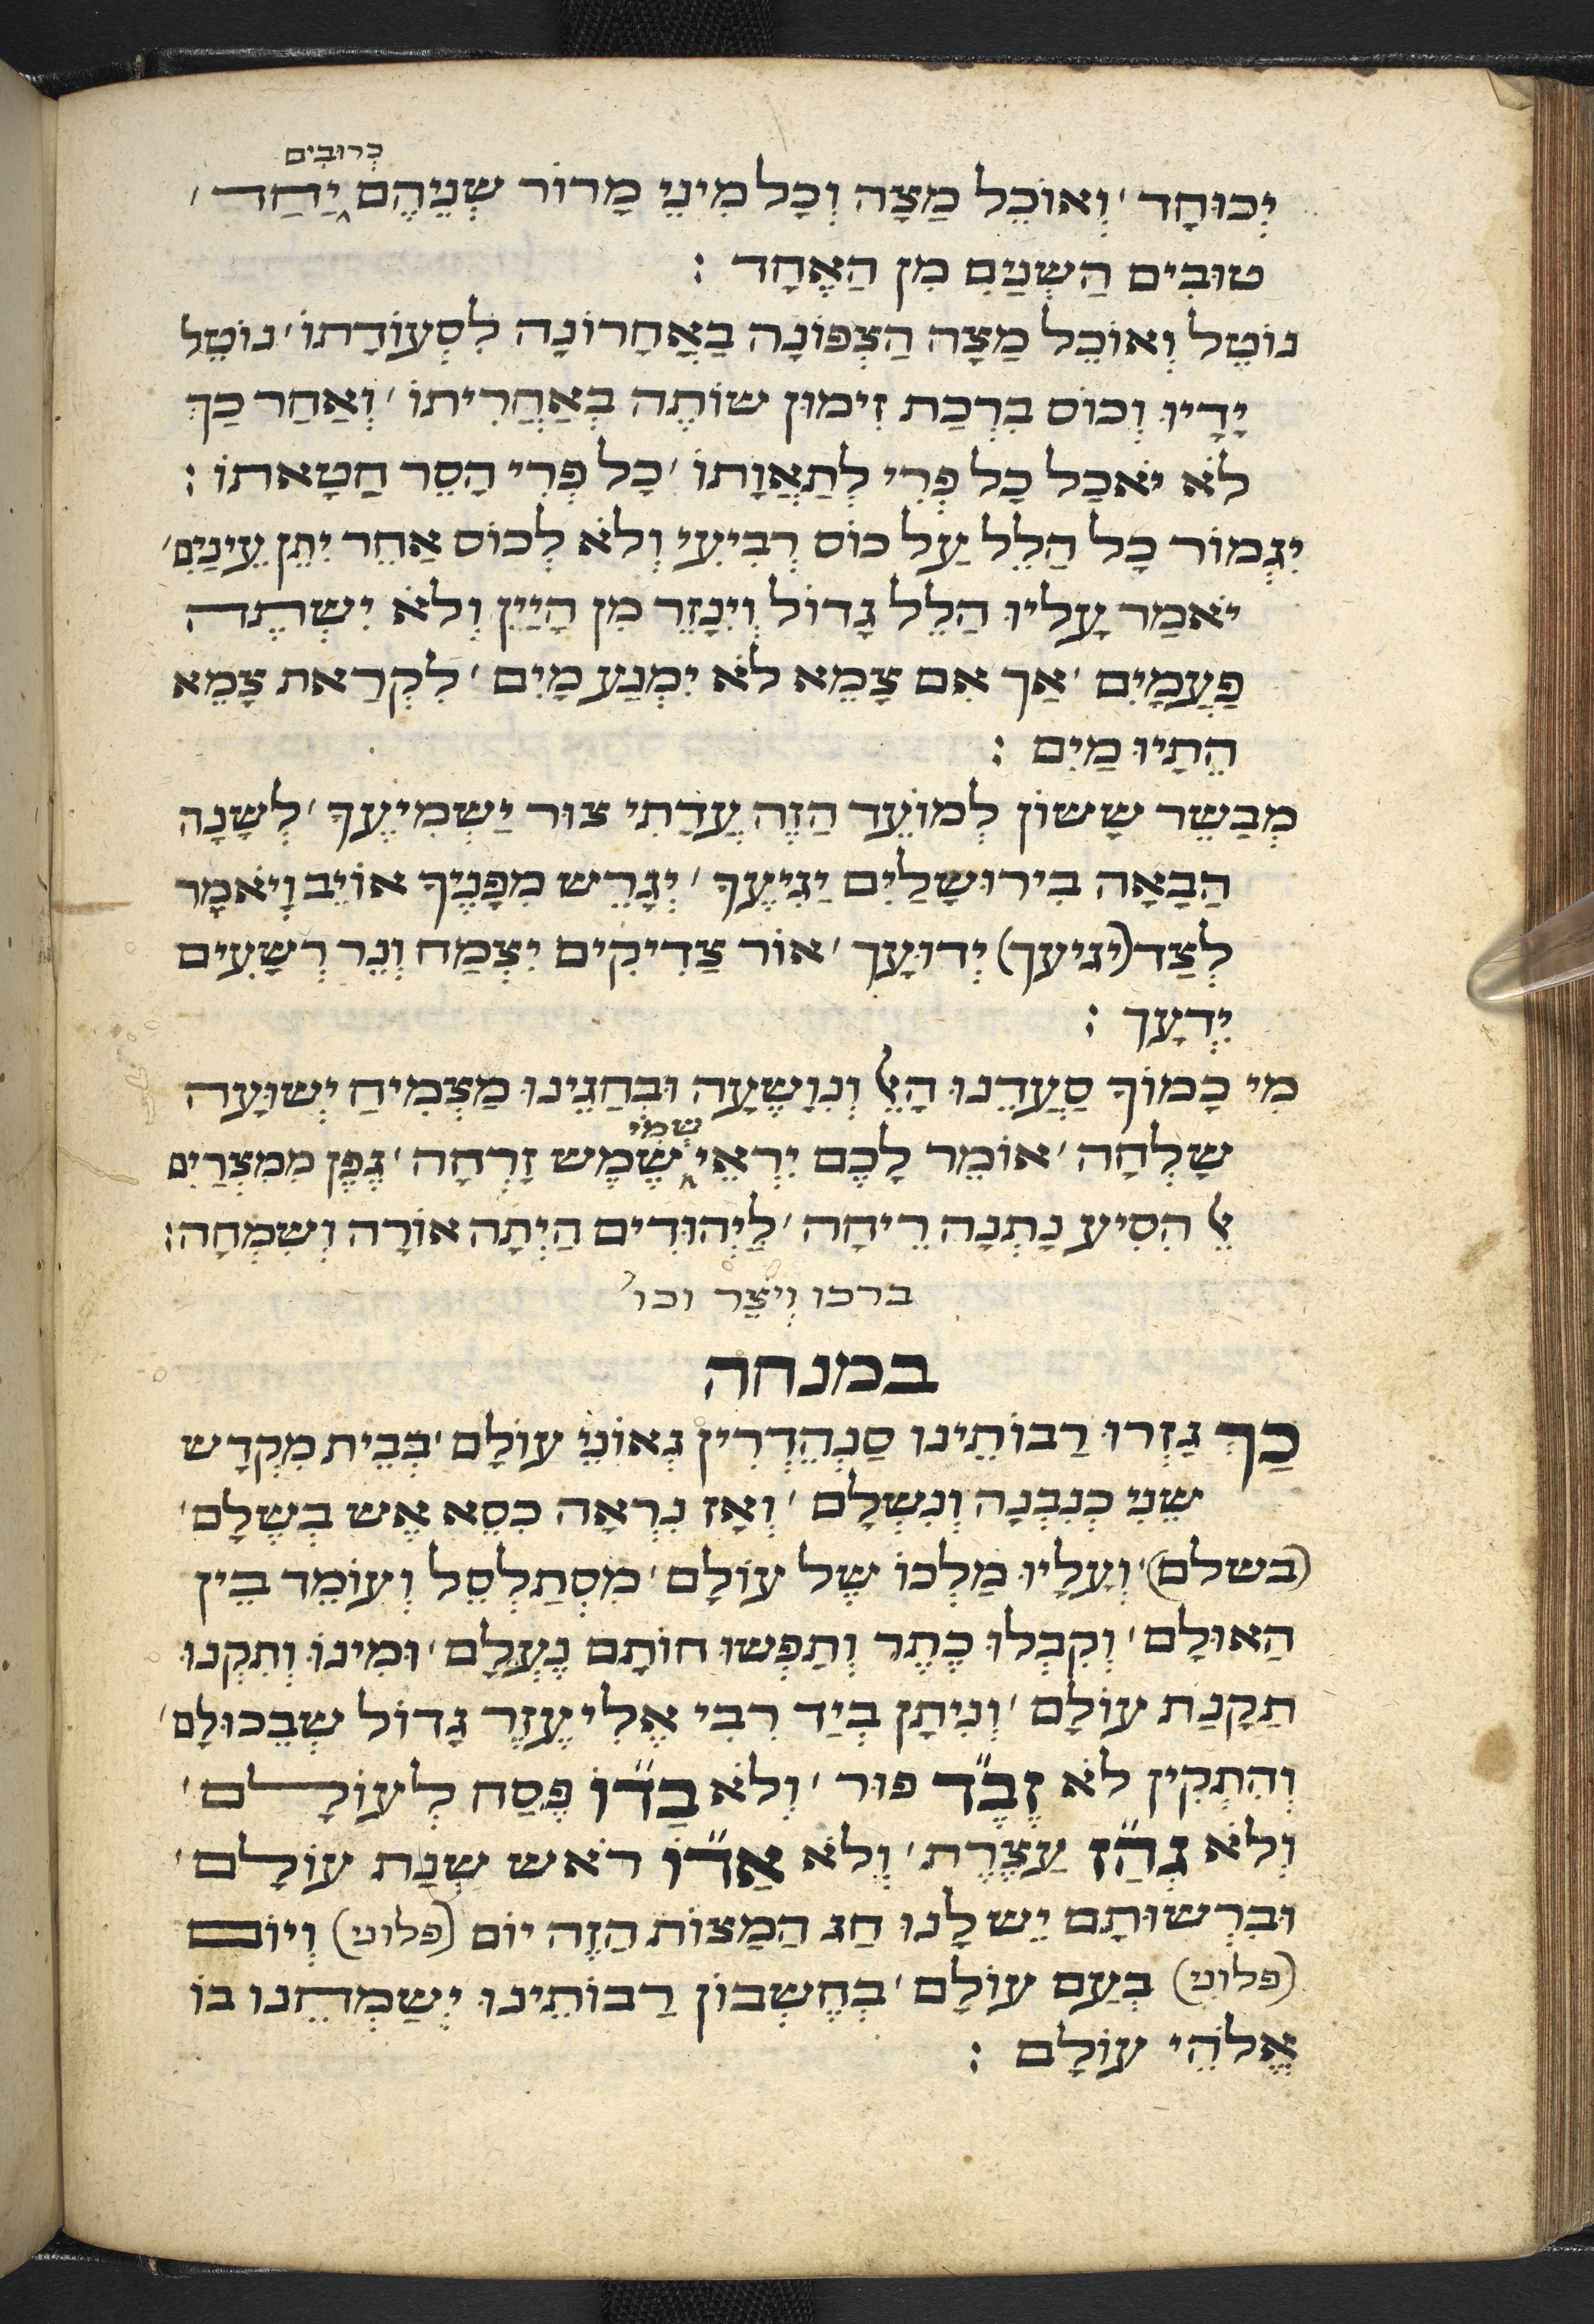 יְכוּחָד׳ וְאוֹכֵל מַצָה וְכָל מִינֵי מָרוֹר שְנֵיהֶם כְרוּבִים יַחַד׳
טוּבִים הַשְנַיִם מִן הָאֶחָד :
נוֹטֵל וְאוֹכֵל מַצָה הַצְפּוּנָה בָאַחֲרוֹנָה לִסְעוּדָתוֹ׳ נוֹטֵל
יָדָיו וְכוֹס בִרְכַת זִימוּן שוֹתֶה בְאַחֲרִיתוֹ׳ וְאַחַר כַךְ
לֹא יֹאכַל כָל פְרִי לְתַאֲוָתוֹ׳ כָל פְרִי הָסֵר חַטָאתוֹ :
יִגְמוֹר כָל הַלֵל עַל כוֹס רְבִיעִי וְלֹא לְכוֹס אַחֵר יִתֵן עֵינַיִם׳
יֹאמַר עָלָיו הַלֵל גָדוֹל וְיִנָזֵר מִן הַיַיִן וְלֹא יִשְתֶה
פַעֲמָיִם׳ אַךְ אִם צָמֵא לֹא יִמְנַע מָיִם׳ לִקְרַאת צָמֵא
הֵתָיוּ מַיִם :
מְבַשֵר שָשוֹן לְמוֹעֵד הַזֶה עֲדָתִי צוּר יַשְמִיעֶךָ׳ לְשָנָה
הַבָאָה בִירוּשָלַיִם יַגִיעֶךָ׳ יְגָרֵש מִפָנֶיךָ אוֹיֵב וְיֹאמַר
לְצַד (יגיעך) יְדוּעָךְ׳ אוֹר צַדִיקִים יִצְמַח וְנֵר רְשָעִים
יִדְעָךְ :
מִי כָמוֹךָ סַעֲדֵנוּ הָאֵל וְנִוָשֵעָה וּבְחַגֵינוּ מַצְמִיחַ יְשוּעָה
שָלְחָה׳ אוֹמֵר לָכֶם יִרְאֵי שְמִי שֶמֶש זָרְחָה׳ גֶפֶן מִמִצְרַיִם
אֵל הִסִיע נָתְנָה רֵיחָה׳ לַיְהוּדִים הָיְתָה אוֹרָה וְשִמְחָה :
ברכו וְיֹצֵר וכו׳
במנחה
כַךְ גָזְרוּ רַבוֹתֵינוּ סַנְהֶדְרִין גְאוֹנֵי עוֹלָם׳ בְבֵית מִקְדָש
שֵנִי כְנִבְנָה וְנִשְלָם׳ וְאָז נִרְאָה כִסֵא אֵש בְשָלֵם׳
(בשלם)׳ וְעָלָיו מַלְכוֹ שֶל עוֹלָם׳ מִסְתַלְסֵל וְעוֹמֵד בֵין
הָאוּלָם׳ וְקִבְלוּ כֶתֶר וְתַפְשוּ חוֹתָם נֶעְלָם׳ וּמִינוּ וְתִקְנוּ
תַקָנַת עוֹלָם׳ וְנִיתָן בְיַד רִבִי אֱלִיעֶזֶר גָדוֹל שֶבְכוּלָם׳
וְהִתְקִין לֹא זֶבֶ״ד פוּר׳ וְלֹא בַדּ״וֹ פֶסַח לְעוֹלָם׳
וְלֹא גְהַ״ז עַצֶרֶת׳ וְלֹא אַד״וֹ רֹאש שְנַת עוֹלָם׳
וּבִרְשוּתָם יֵש לָנוּ חַג הַמַצוֹת הַזֶה יוֹם (פלוני) וְיוֹם
(פלוני) בְעַם עוֹלָם׳ בְחֶשְבוֹן רַבוֹתֵינוּ יְשַמְחֵנוּ בוֹ
אֱלֹהֵי עוֹלָם :